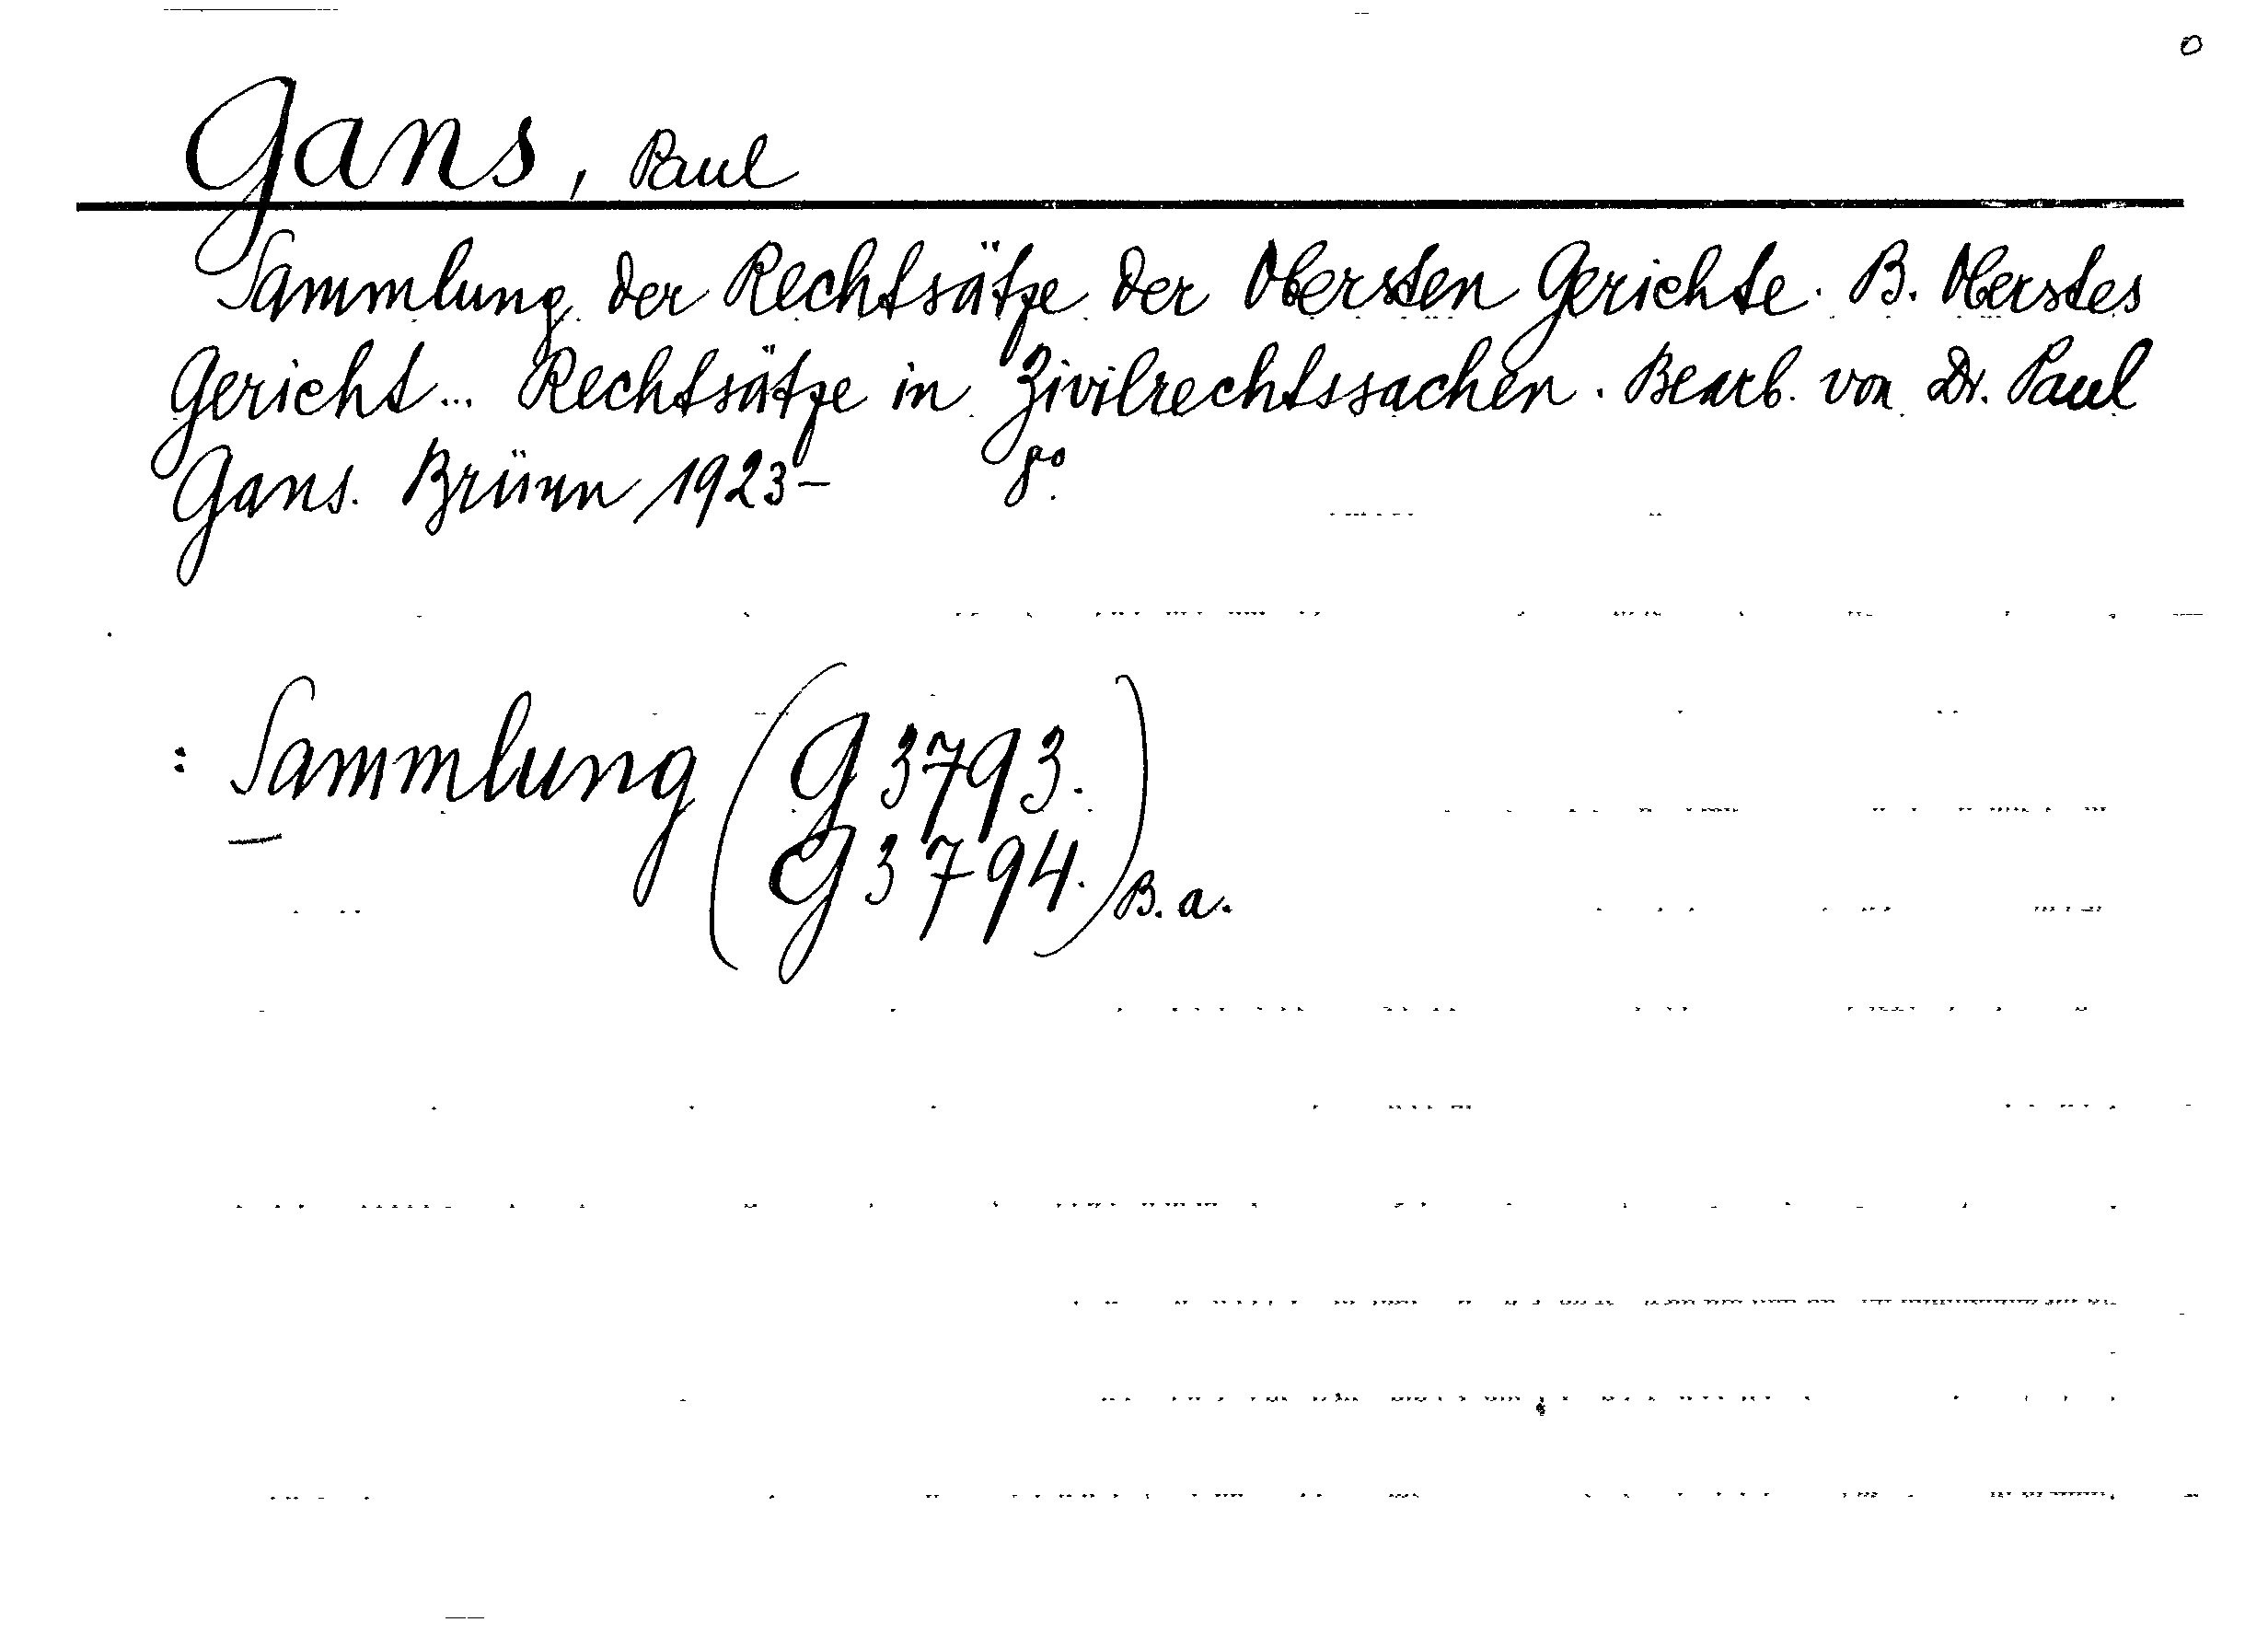 Gans, Paul
Sammlung der Rechtsätze der Obersten Gerichte. B. Oberstes
Gericht... Rechtsätze in Zivilrechtssachen. Bearb. von Dr. Paul
Gans. Brünn 1923- 8°.
: Sammlung (G 3793.
G 3794.) B. a.